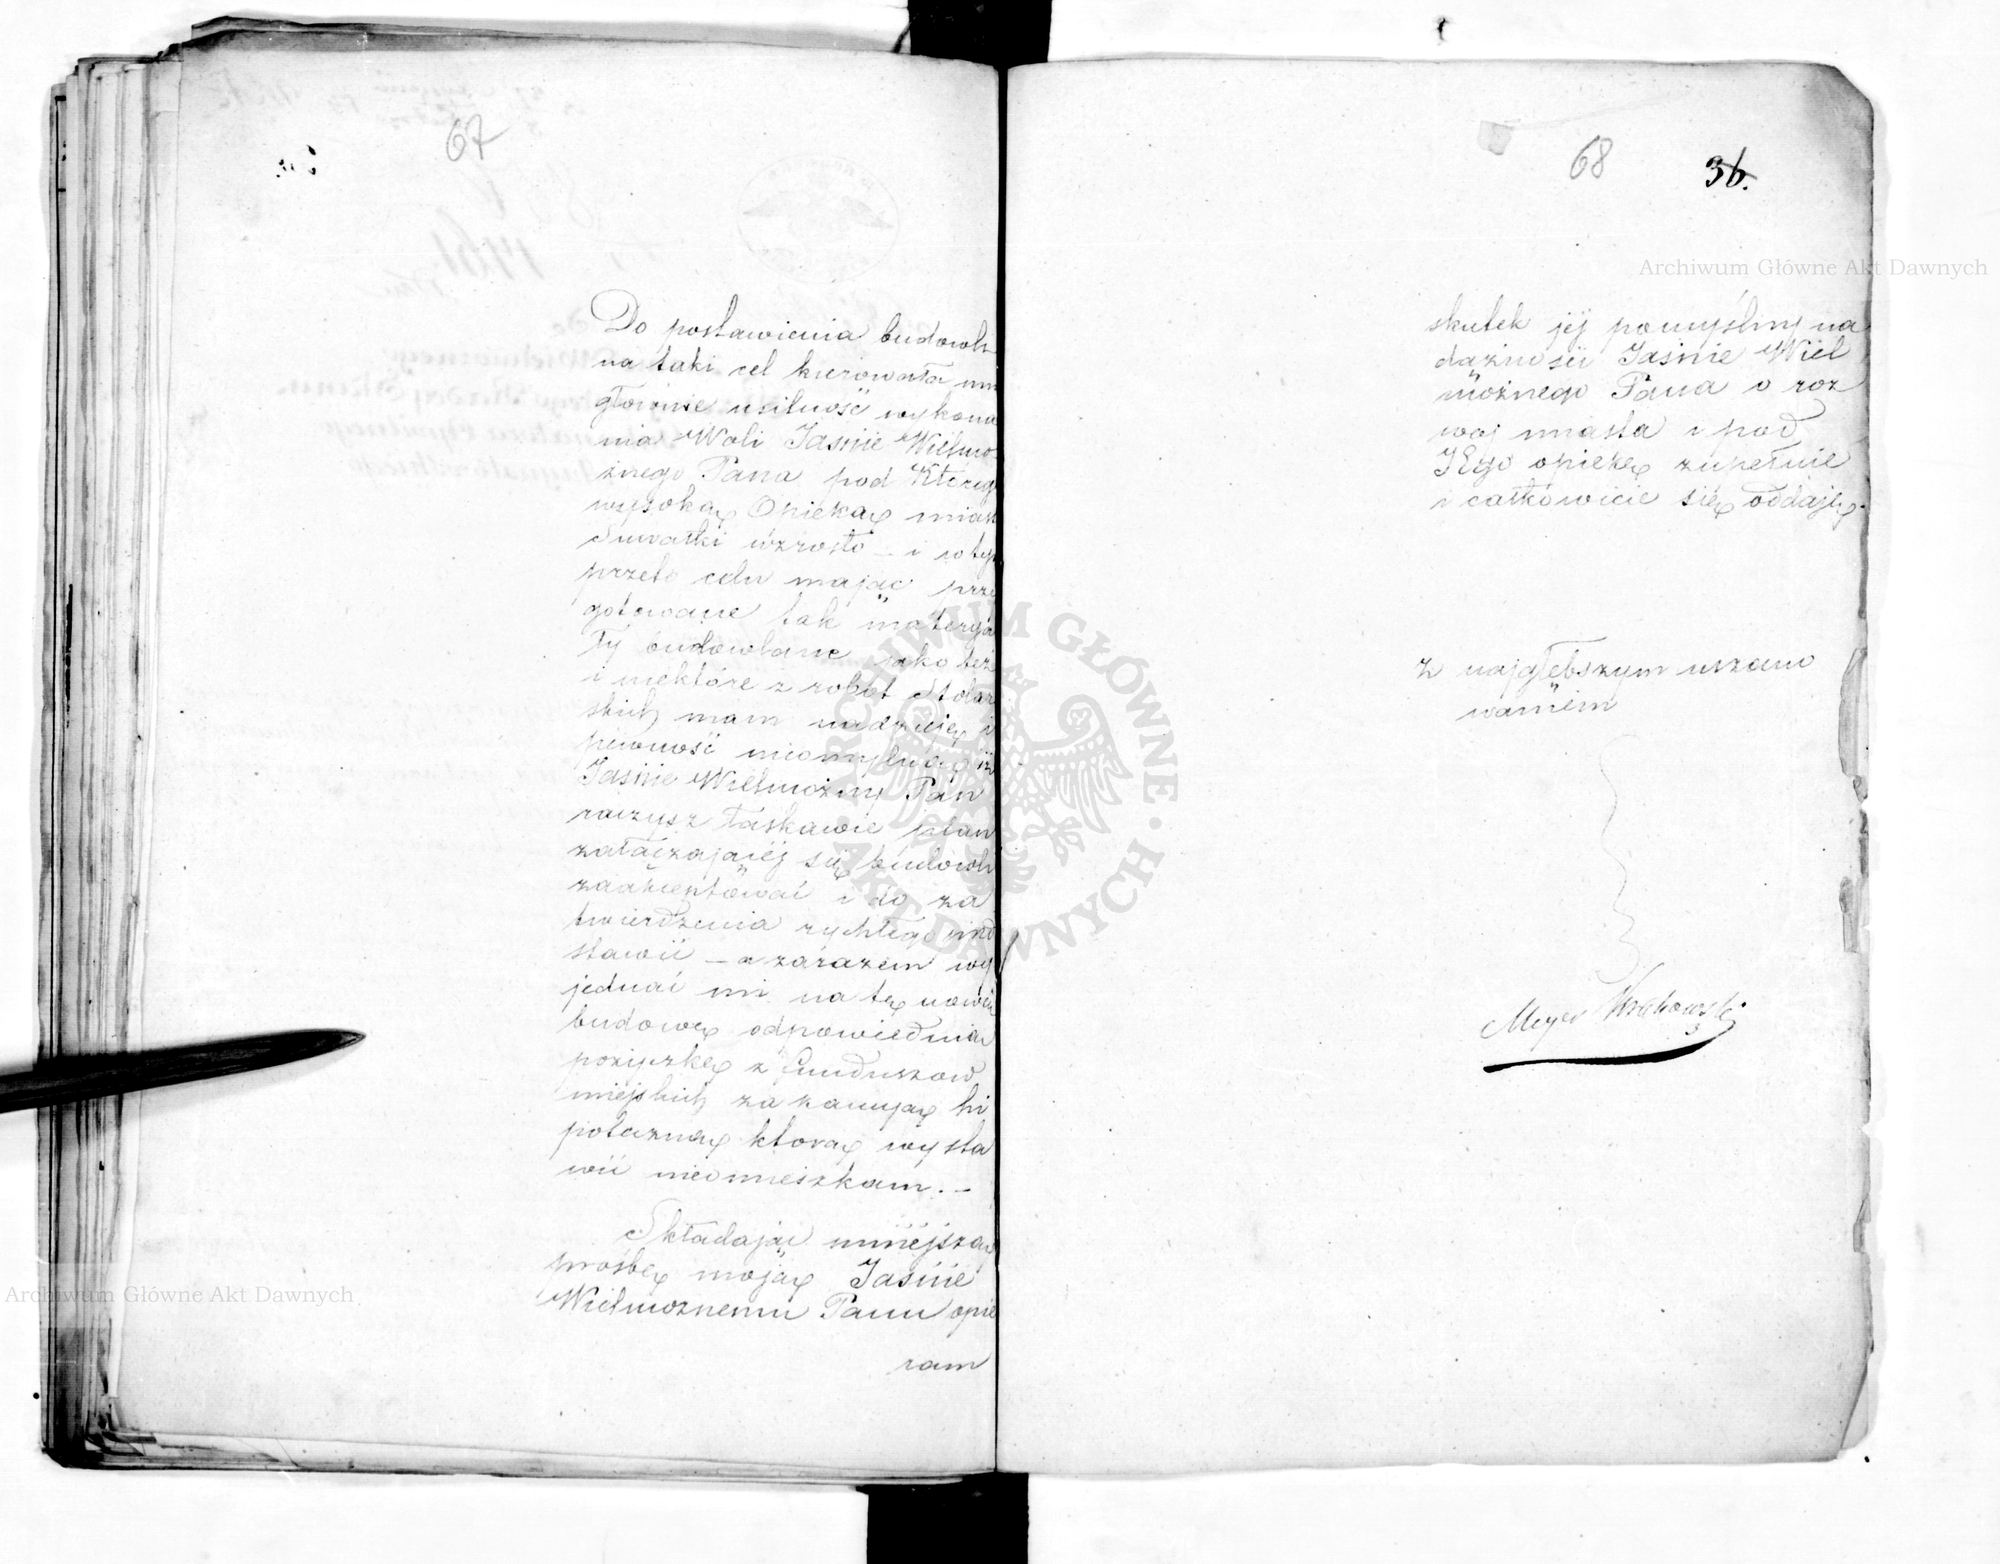 67
Do postawienia budowli
na taki cel kierowała mn
głównie usilność wykona
nia Woli Jaśnie Wielmo
żnego Pana pod Którego
wysoką Opieką miast
Suwałki wzrosło – i w tym
przeto celu mając przy
gotowane tak materya
ły budowlane jako też
i niektóre z robot Stolar
skich mam nadzieję i
pewność nieomylną iż
Jaśnie Wielmożny Pan
raczysz łaskawie plan
załączającej się budowli
zaakceptować i do za
twierdzenia rychłego przed
stawić – a zarazem wy
jednać mi na tę nową
budowę odpowiednią
pożyczkę z funduszow
miejskich za kaucyą hi
poteczną którą wysta
wić nieomieszkam. –
Składając niniejszą
prośbę moją Jaśnie
Wielmożnemu Panu opie
ram
68
36.
skutek jej pomyślny na
dążności Jaśnie Wiel
możnego Pana o roz
woj miasta i pod
JEgo opiekę zupełnie
i całkowicie się oddaję.
z najgłębszym uszano
waniem
Meyer
Archiwum Główne Akt Dawnych
Archiwum Główne Akt Dawnych
ARCHIWUM GŁÓWNE · AKT DAWNYCH ·